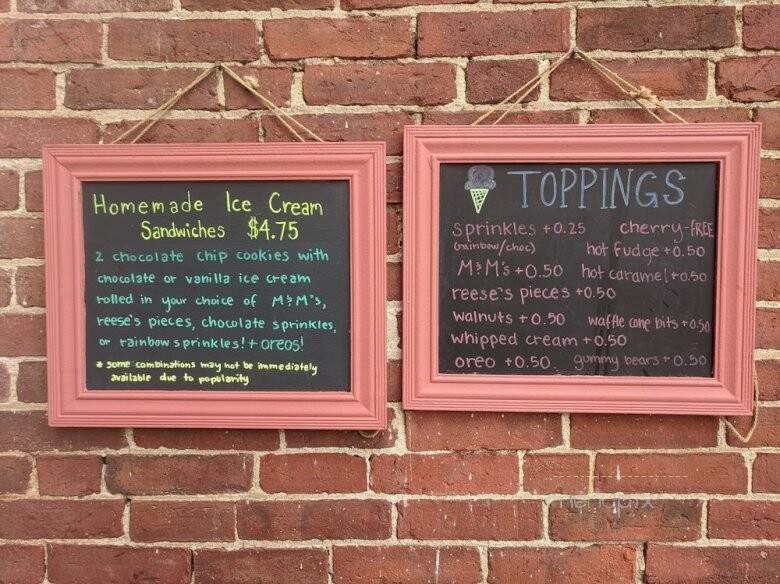 Homemade Ice Cream
Sandwiches $4.75
2 chocolate chip cookies with
chocolate or vanilla ice cream
rolled in your choice of M&M's,
reese's pieces, chocolate sprinkles,
or rainbow sprinkles! + oreos!
* some combinations may not be immediately
available due to popularity
TOPPINGS
sprinkles +0.25 cherry-FREE
(rainbow/choc) hot fudge +0.50
M&M's +0.50 hot caramel +0.50
reese's pieces +0.50
walnuts +0.50 waffle cone bits +0.50
whipped cream +0.50
oreo +0.50 gummy bears +0.50